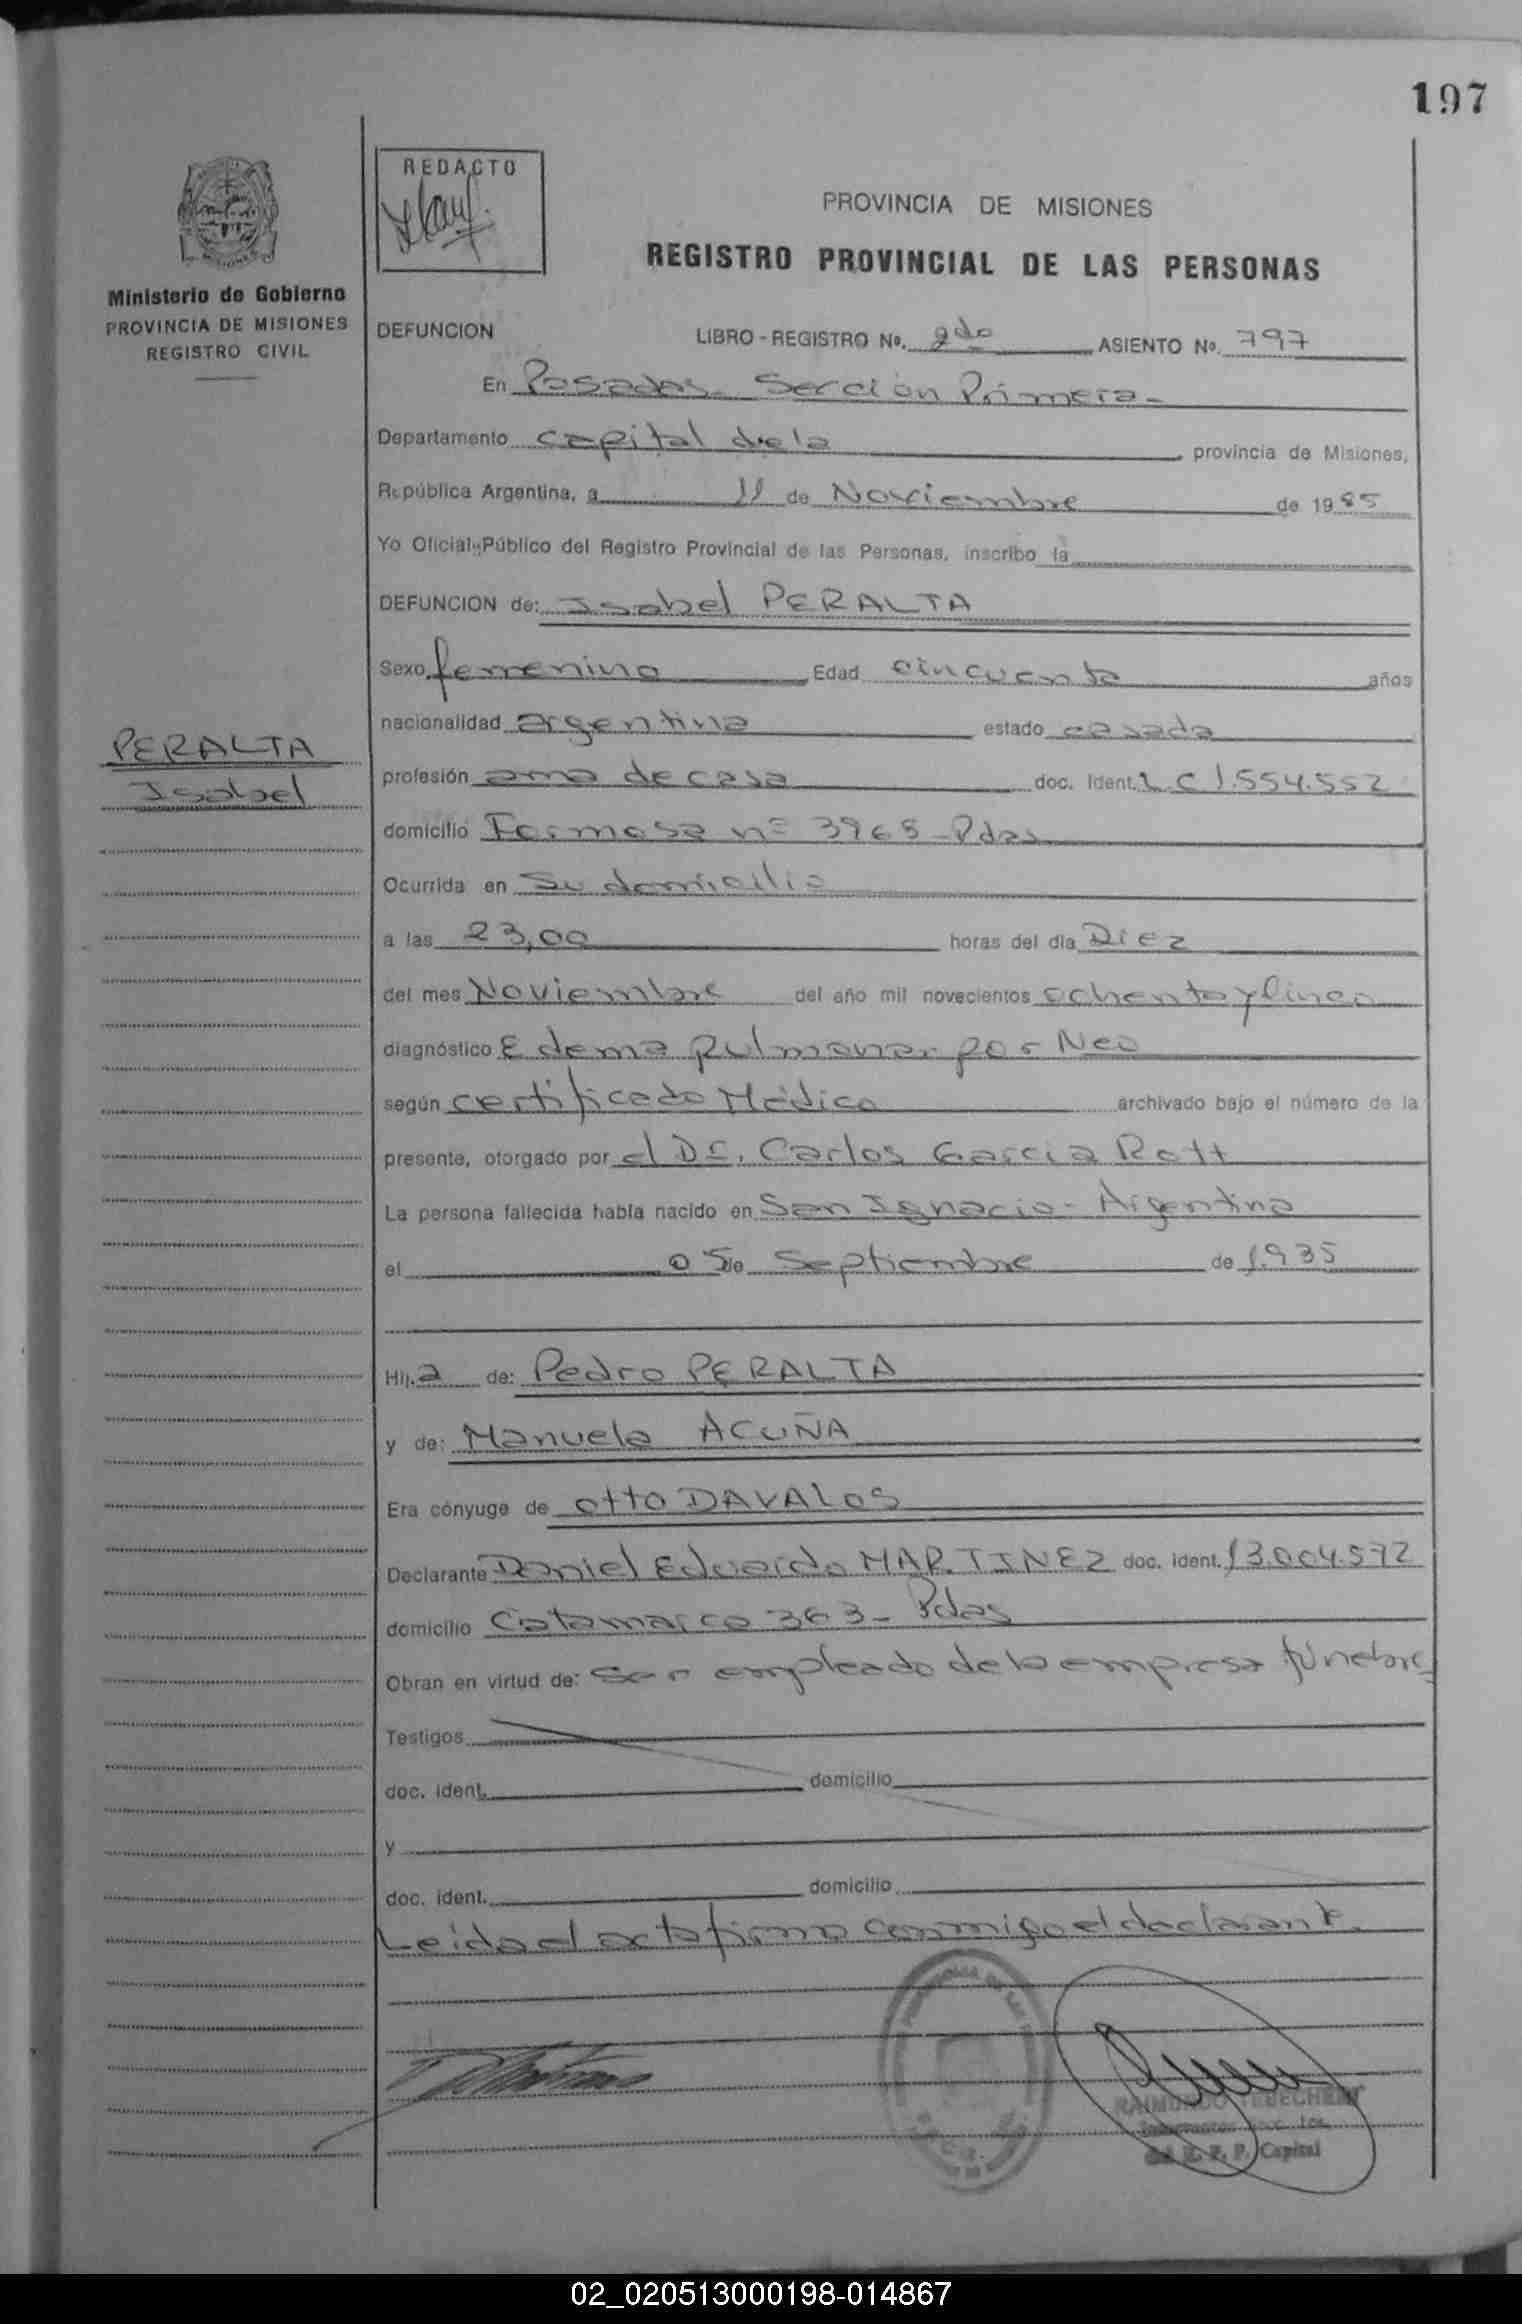 197
REDACTO
PROVINCIA DE MISIONES
REGISTRO PROVINCIAL DE LAS PERSONAS
Ministerio de Gobierno
PROVINCIA DE MISIONES
REGISTRO CIVIL
DEFUNCION LIBRO - REGISTRO Nº. 2do ASIENTO Nº. 797
En Posadas - Sección Primera -
Departamento capital de la provincia de Misiones,
República Argentina, a 11 de Noviembre de 1985
Yo Oficial Público del Registro Provincial de las Personas, inscribo la
DEFUNCION de: Isabel PERALTA
Sexo femenino Edad cincuenta años
nacionalidad argentina estado casada
PERALTA
Isabel
profesión ama de casa doc. Ident. L.C 1.554.552
domicilio Formosa nº 3965 - Pdas
Ocurrida en su domicilio
a las 23,00 horas del día Diez
del mes Noviembre del año mil novecientos ochenta y cinco
diagnóstico Edema pulmonar por Neo
según certificado Médico archivado bajo el número de la
presente, otorgado por el Dr. Carlos Garcia Rott
La persona fallecida había nacido en San Ignacio - Argentina
el 05 de Septiembre de 1.935
Hij.a de: Pedro PERALTA
y de: Manuela ACUÑA
Era cónyuge de Otto DAVALOS
Declarante Daniel Eduardo MARTINEZ doc. ident. 13.004.572
domicilio Catamarca 363 - Pdas
Obran en virtud de: Ser empleado de la empresa fúnebre
Testigos
doc. ident. domicilio
y
doc. ident. domicilio
Leida el acta firma conmigo el declarante.
RAIMUNDO
R. P. P. Capital
02_020513000198-014867